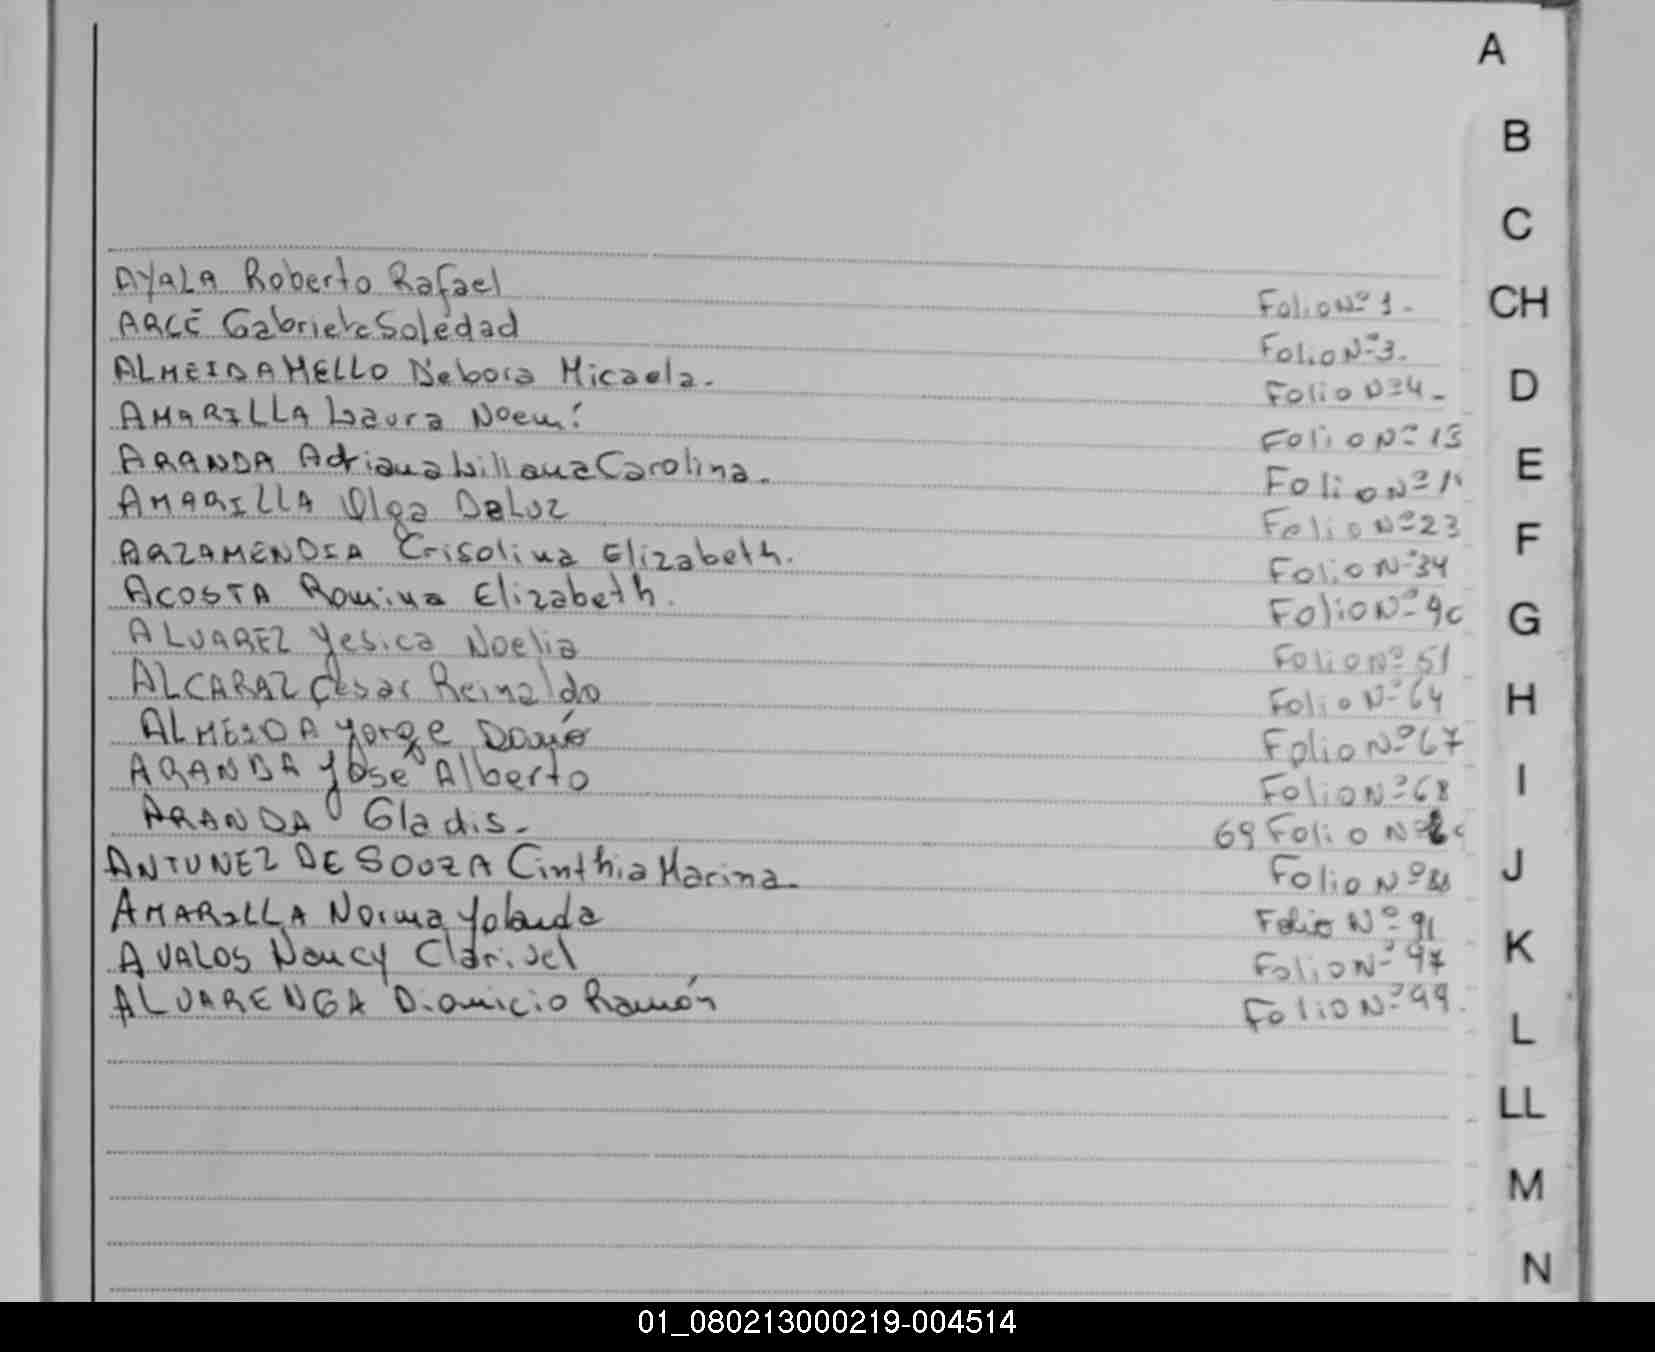 A
B
C
CH
D
E
F
G
H
I
J
K
L
LL
M
N
AYALA Roberto Rafael Folio Nº 1.
ARCE Gabriela Soledad Folio Nº 3.
ALMEIDA MELLO Debora Micaela. Folio Nº 4.
AMARILLA Laura Noemí Folio Nº 13
ARANDA Adriana Lillana Carolina. Folio Nº
AMARILLA Olga DeLuz Folio Nº 23
ARZAMENDIA Crisolina Elizabeth. Folio Nº 34
ACOSTA Romina Elizabeth. Folio Nº
ALVAREZ Yesica Noelia Folio Nº 51
ALCARAZ Cesar Reinaldo Folio Nº 64
ALMEIDA Jorge Folio Nº 67
ARANDA José Alberto Folio Nº 68
ARANDA Gladis. 69 Folio Nº
ANTUNEZ DE SOUZA Cinthia Marina. Folio Nº
AMARILLA Norma Yolanda Folio Nº 91
AVALOS Nancy Clarivel Folio Nº 97
ALVARENGA Dionicio Ramón Folio Nº 99.
01_080213000219-004514